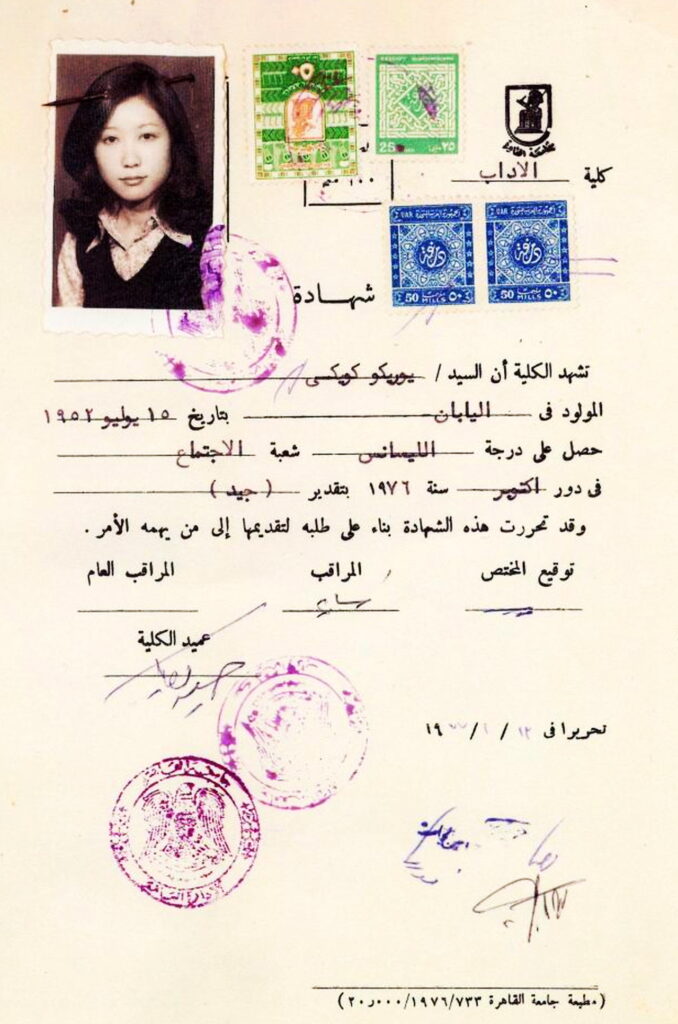 جامعة القاهرة
كلية الاداب
EGYPT
25 مليما ٢٥
١٠٠ مليم
UAR الجمهورية العربية المتحدة
دمغة
50 MILLS ٥٠
UAR الجمهورية العربية المتحدة
دمغة
50 MILLS ٥٠
شهادة
تشهد الكلية أن السيد / يوريكو كويكى
المولود فى اليابان بتاريخ ١٥ يوليو ١٩٥٢
حصل على درجة الليسانس شعبة الاجتماع
فى دور اكتوبر سنة ١٩٧٦ بتقدير ( جيد )
وقد تحررت هذه الشهادة بناء على طلبه لتقديمها إلى من يهمه الأمر .
توقيع المختص المراقب المراقب العام
عميد الكلية
تحريرا فى ١٢ / ١ / ١٩
جامعة القاهرة
(مطبعة جامعة القاهرة ١٩٧٦/٧٣٣/٢٠٫٠٠٠)